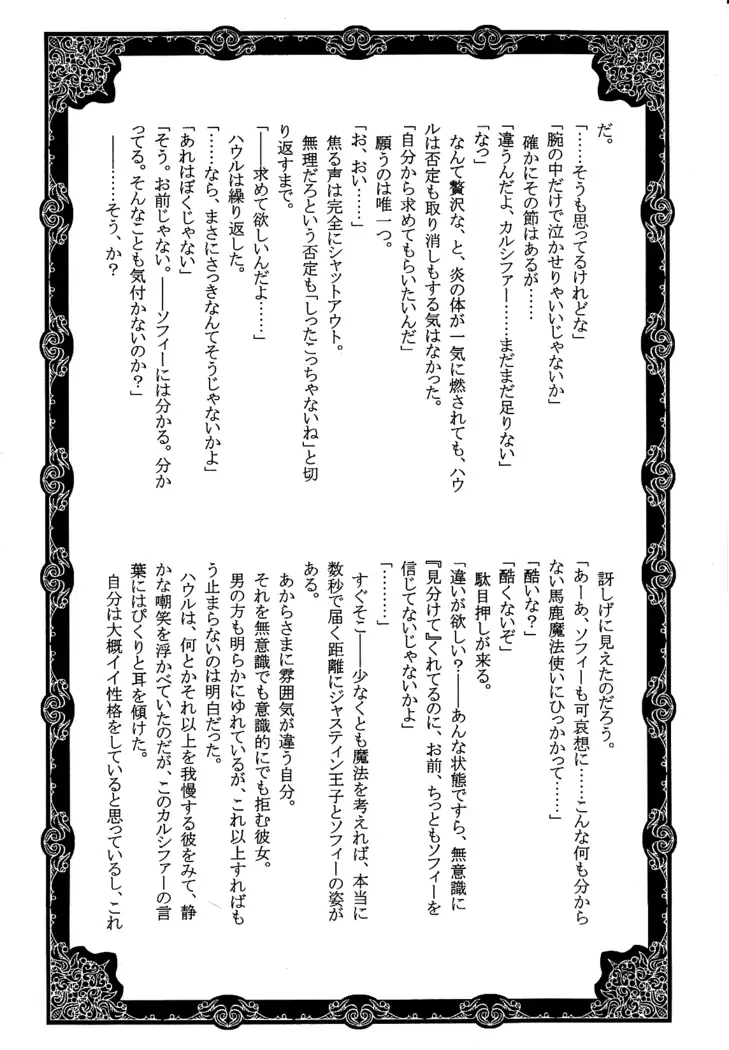 だ。
「……そうも思ってるけれどな」
「腕の中だけで泣かせりゃいいじゃないか」
確かにその節はあるが……
「違うんだよ、カルシファー……まだまだ足りない」
「なっ」
なんて贅沢な、と、炎の体が一気に燃されても、ハウ
ルは否定も取り消しもする気はなかった。
「自分から求めてもらいたいんだ」
願うのは唯一つ。
「お、おい……」
焦る声は完全にシャットアウト。
無理だろという否定も「しったこっちゃないね」と切
り返すまで。
「――求めて欲しいんだよ……」
ハウルは繰り返した。
「……なら、まさにさっきなんてそうじゃないかよ」
「あれはぼくじゃない」
「そう。お前じゃない。――ソフィーには分かる。分か
ってる。そんなことも気付かないのか?」
――………そう、か?
訝しげに見えたのだろう。
「あーあ、ソフィーも可哀想に……こんな何も分から
ない馬鹿魔法使いにひっかかって……」
「酷いな?」
「酷くないぞ」
駄目押しが来る。
「違いが欲しい?――あんな状態ですら、無意識に
『見分けて』くれてるのに、お前、ちっともソフィーを
信じてないじゃないかよ」
「………」
すぐそこ――少なくとも魔法を考えれば、本当に
数秒で届く距離にジャスティン王子とソフィーの姿が
ある。
あからさまに雰囲気が違う自分。
それを無意識でも意識的にでも拒む彼女。
男の方も明らかにゆれているが、これ以上すればも
う止まらないのは明白だった。
ハウルは、何とかそれ以上を我慢する彼をみて、静
かな嘲笑を浮かべていたのだが、このカルシファーの言
葉にはぴくりと耳を傾けた。
自分は大概イイ性格をしていると思っているし、これ